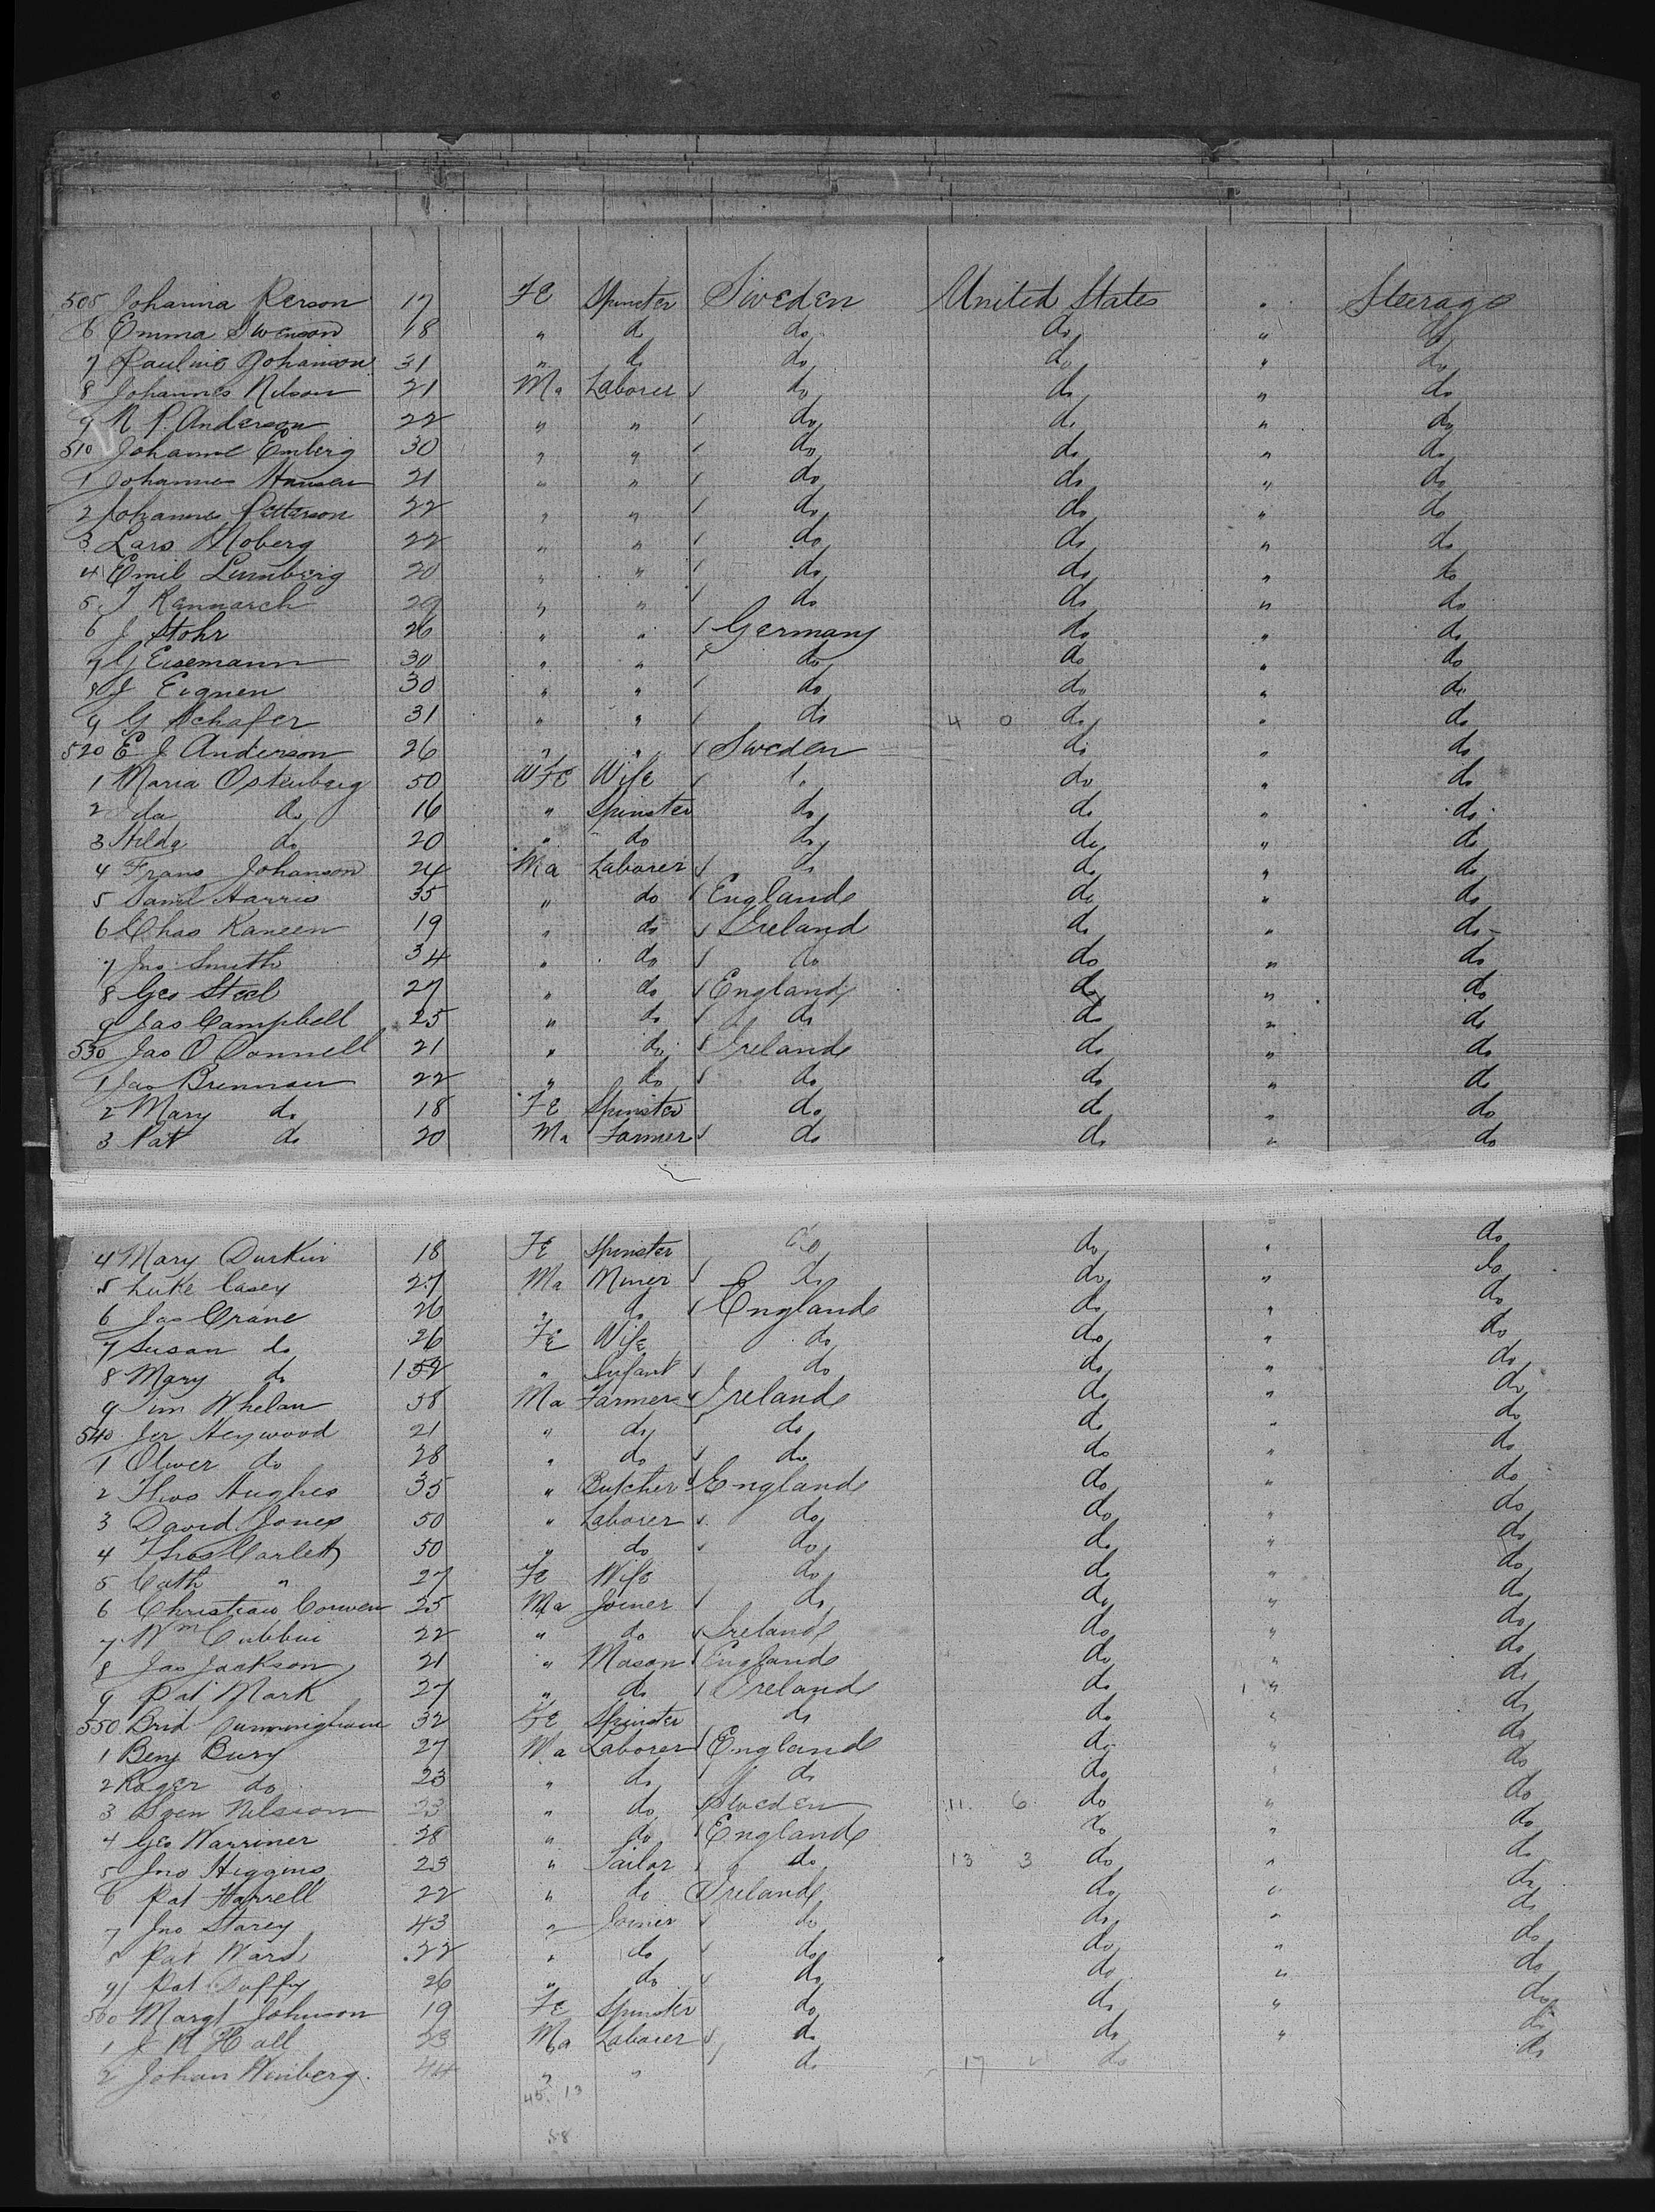 505 Johanna Person 17 FE Spinster Sweden United States " Steerage
6 Emma Swenson 18 " do do do " do
7 Pauline Johanson 31 " do do do " do
8 Johannes Nilson 21 Ma Laborer do do " do
9 N P. Anderson 22 " " do do " do
510 Johanne Emberg 30 " " do do " do
1 Johannes Hansen 21 " " do do " do
2 Johannes Petterson 22 " " do do " do
3 Lars Moberg 22 " " do do " do
4 Emil Lumberg 20 " " do do " do
5 J Rennarch 29 " " do do " do
6 J Stohr 26 " " Germany do " do
7 G Eisemann 30 " " do do " do
8 J Eignen 30 " " do do " do
9 G Schafer 31 " " do 4 0 do " do
520 E J Anderson 26 " " Sweden do " do
1 Maria Ostenberg 50 FE Wife do " do
2 Ida do 16 " Spinster do do " do
3 Hilda do 20 " do do do " do
4 Frans Johanson 24 Ma Laborer do do " do
5 Saml Harris 35 " do England do " do
6 Chas Kaneen 19 " do Ireland do " do
7 Jno Smith 34 " do do do " do
8 Geo Steel 27 " do England do " do
9 Jas Campbell 25 " do do do " do
530 Jas O Donnell 21 " do Ireland do " do
1 Jas Brennan 22 " do do do " do
2 Mary do 18 FE Spinster do do " do
3 Pat do 20 Ma Farmer do do " do
4 Mary Durkin 18 FE Spinster do do " do
5 Luke Casey 27 Ma Miner do do " do
6 Jas Crane 26 " do England do " do
7 Susan do 26 FE Wife do do " do
8 Mary do " Infant do do " do
9 Tim Whelan 38 Ma Farmer Ireland do " do
540 Jer Heywood 21 " do do do " do
1 Oliver do 28 " do do do " do
2 Thos Hughes 35 " Butcher England do " do
3 David Jones 50 " Laborer do do " do
4 Thos Carlett 50 " do do do " do
5 Cath " 27 FE Wife do do " do
6 Christian Couwen 25 Ma Joiner do do " do
7 Wm Cubbin 22 " do Ireland do " do
8 Jas Jackson 21 " Mason England do " do
9 Pat Mark 27 " do Ireland do 1 " do
550 Brid Cunningham 32 FE Spinster do do " do
1 Benj Bury 27 Ma Laborer England do " do
2 Roger do 23 " do do do " do
3 Sven Nilsson 23 " do Sweden 11. 6 do " do
4 Geo Warriner 28 " do England do " do
5 Jno Higgins 23 " Tailor do 13 3 do " do
6 Pat Farrell 22 " do Ireland do " do
7 Jno Starey 43 " Joiner do do " do
8 Pat Ward 22 " do do do " do
9 Pat Duffy 26 " do do do " do
560 Margt Johnson 19 FE Spinster do do " do
1 J R Hall 23 Ma Laborer do do " do
2 Johan Winberg 44 " " do 17 do do
45. 13
58